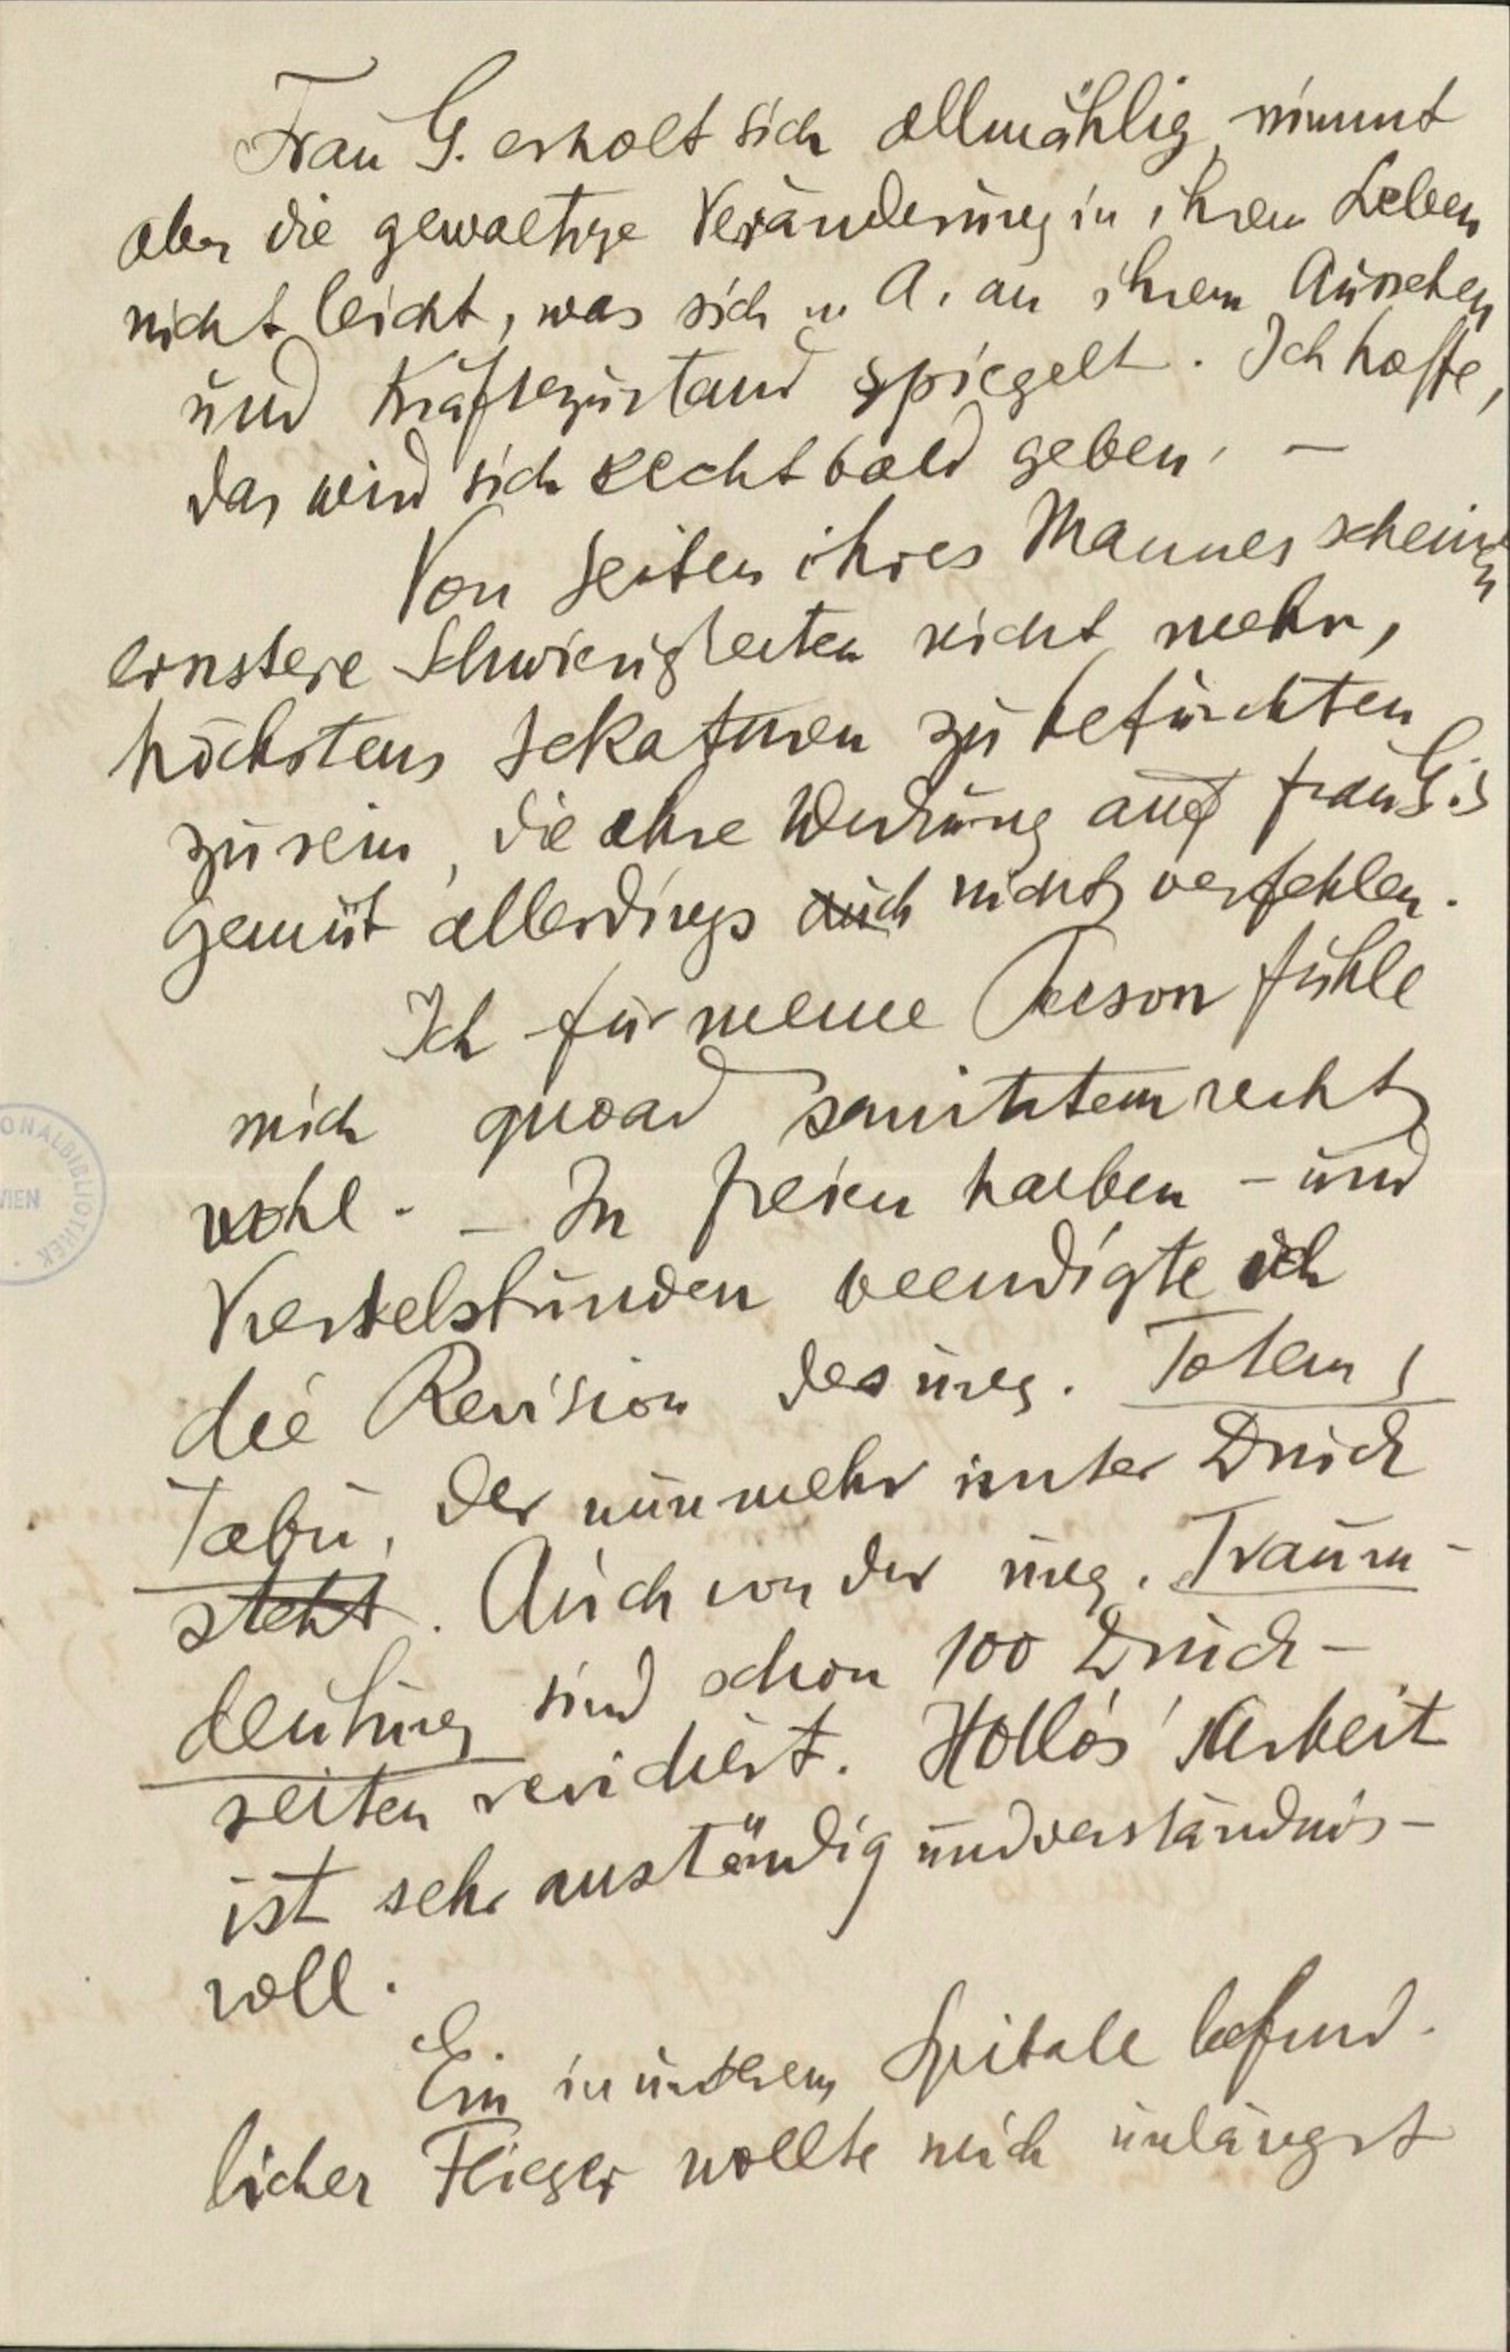 Frau G. erholt sich allmählig, nimmt
aber die gewaltige Veränderung in ihrem Leben
nicht leicht, was sich u. A. an ihrem Aussehen
und Kräftezustand spiegelt. Ich hoffe,
das wird sich recht bald geben. –
Von Seiten ihres Mannes scheinen
ernstere Schwierigkeiten nicht mehr,
höchstens Sekaturen zu befürchten
zu sein, die ihre Wirkung auf Frau G.'s
Gemüt allerdings auch nicht verfehlen.
Ich für meine Person fühle
mich quoad sanitatem recht
wohl. – In freien halben – und
Viertelstunden beendigte ich
die Revision des ung. Totem &
Tabu, der nunmehr unter Druck
steht. Auch von der ung. Traum-
deutung sind schon 100 Druck-
seiten revidiert. Hollós' Arbeit
ist sehr anständig und verständnis-
voll.
Ein in unserem Spitale befind-
licher Flieger wollte mich unlängst
ONALBIBLIOTHEK
WIEN